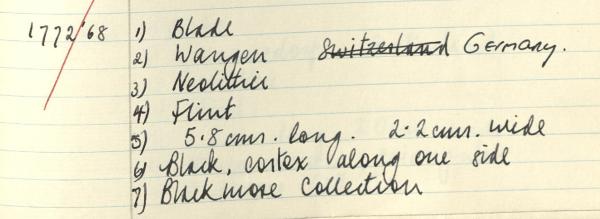 1772/68 1) Blade
2) Wangen Switzerland Germany.
3) Neolithic
4) Flint
5) 5.8 cms. long. 2.2 cms. wide
6) Black, cortex along one side
7) Blackmore Collection